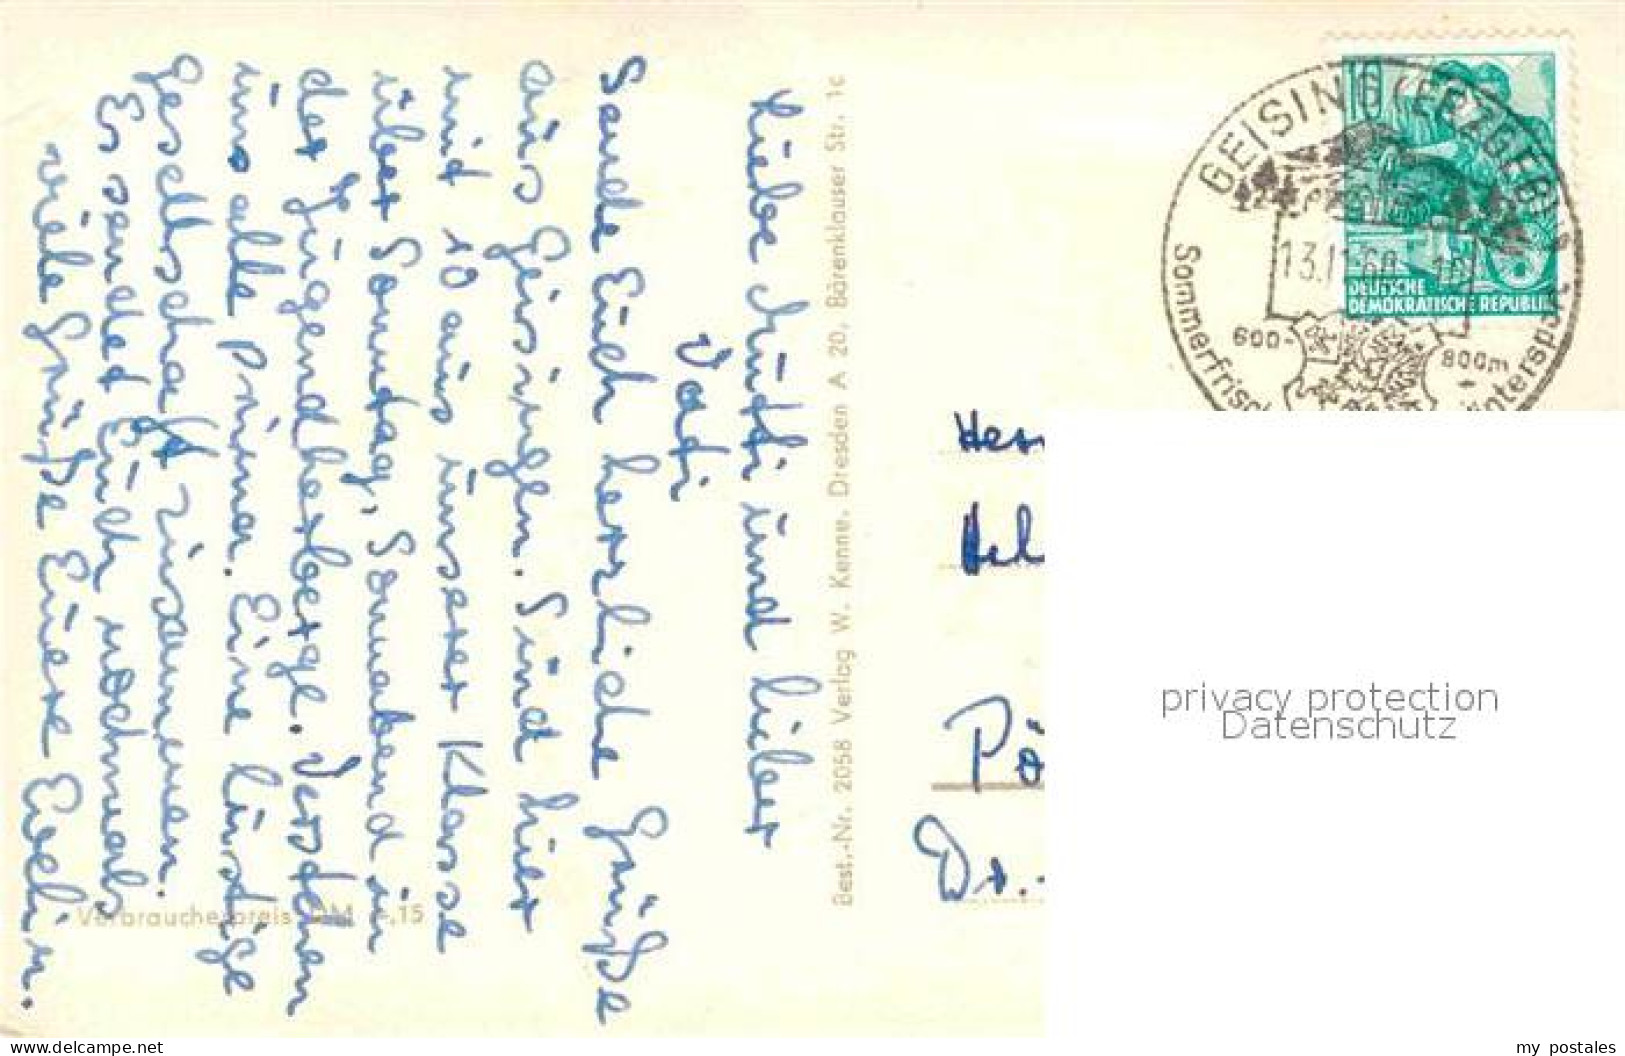 Liebe Mutti und lieber
Vati
Sende Euch herzliche Grüße
aus Geisingen. Sind hier
mit 10 aus unserer Klasse
über Sonntag, Sonnabend in
der Jugendherberge. Verstehen
uns alle prima. Eine lustige
Gesellschaft zusammen.
Es sendet Euch nochmals
viele Grüße Euere Evelin.
Verbraucherpreis DM -.15
Best.-Nr. 2058 Verlag W. Kenne, Dresden A 20, Bärenklauser Str. 1c
GEISING (ERZGEB)
13.11.60
600-
800m
Sommerfrisch
Wintersport
10
DEUTSCHE
DEMOKRATISCHE REPUBLIK
Herr
Hel
Pö
Dr.
privacy protection
Datenschutz
www.delcampe.net
my_postales